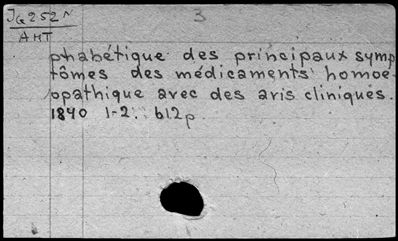 JG252N
3
AHT
phabétique des principaux symp
tômes des médicaments homoe-
opathique avec des avis cliniques.
1840 1-2. 612p.